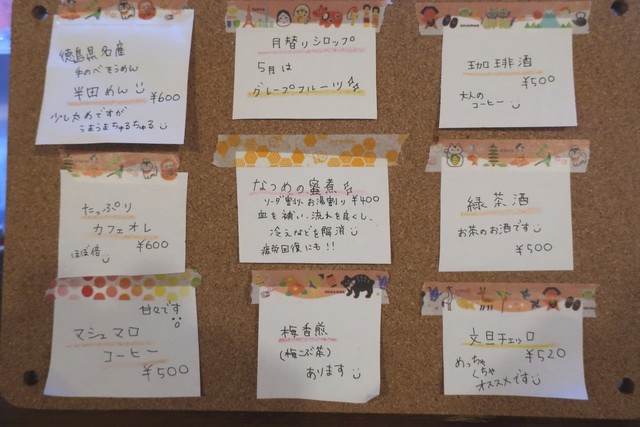 徳島県名産
手のべそうめん
半田めん
¥600
少し太めですが
うまうまちゅるちゅる
月替りシロップ
5月は
グレープフルーツ
珈琲酒
¥500
大人の
コーヒー
たっぷり
カフェオレ
¥600
ほぼ倍
なつめの蜜煮
ソーダ割り・お湯割り ¥400
血を補い、流れを良くし、
冷えなどを解消
疲労回復にも!!
緑茶酒
お茶のお酒です
¥500
甘々です
マシュマロ
コーヒー
¥500
梅香煎
(梅こぶ茶)
あります
文旦チェッロ
¥520
めっちゃ
くちゃ
オススメです